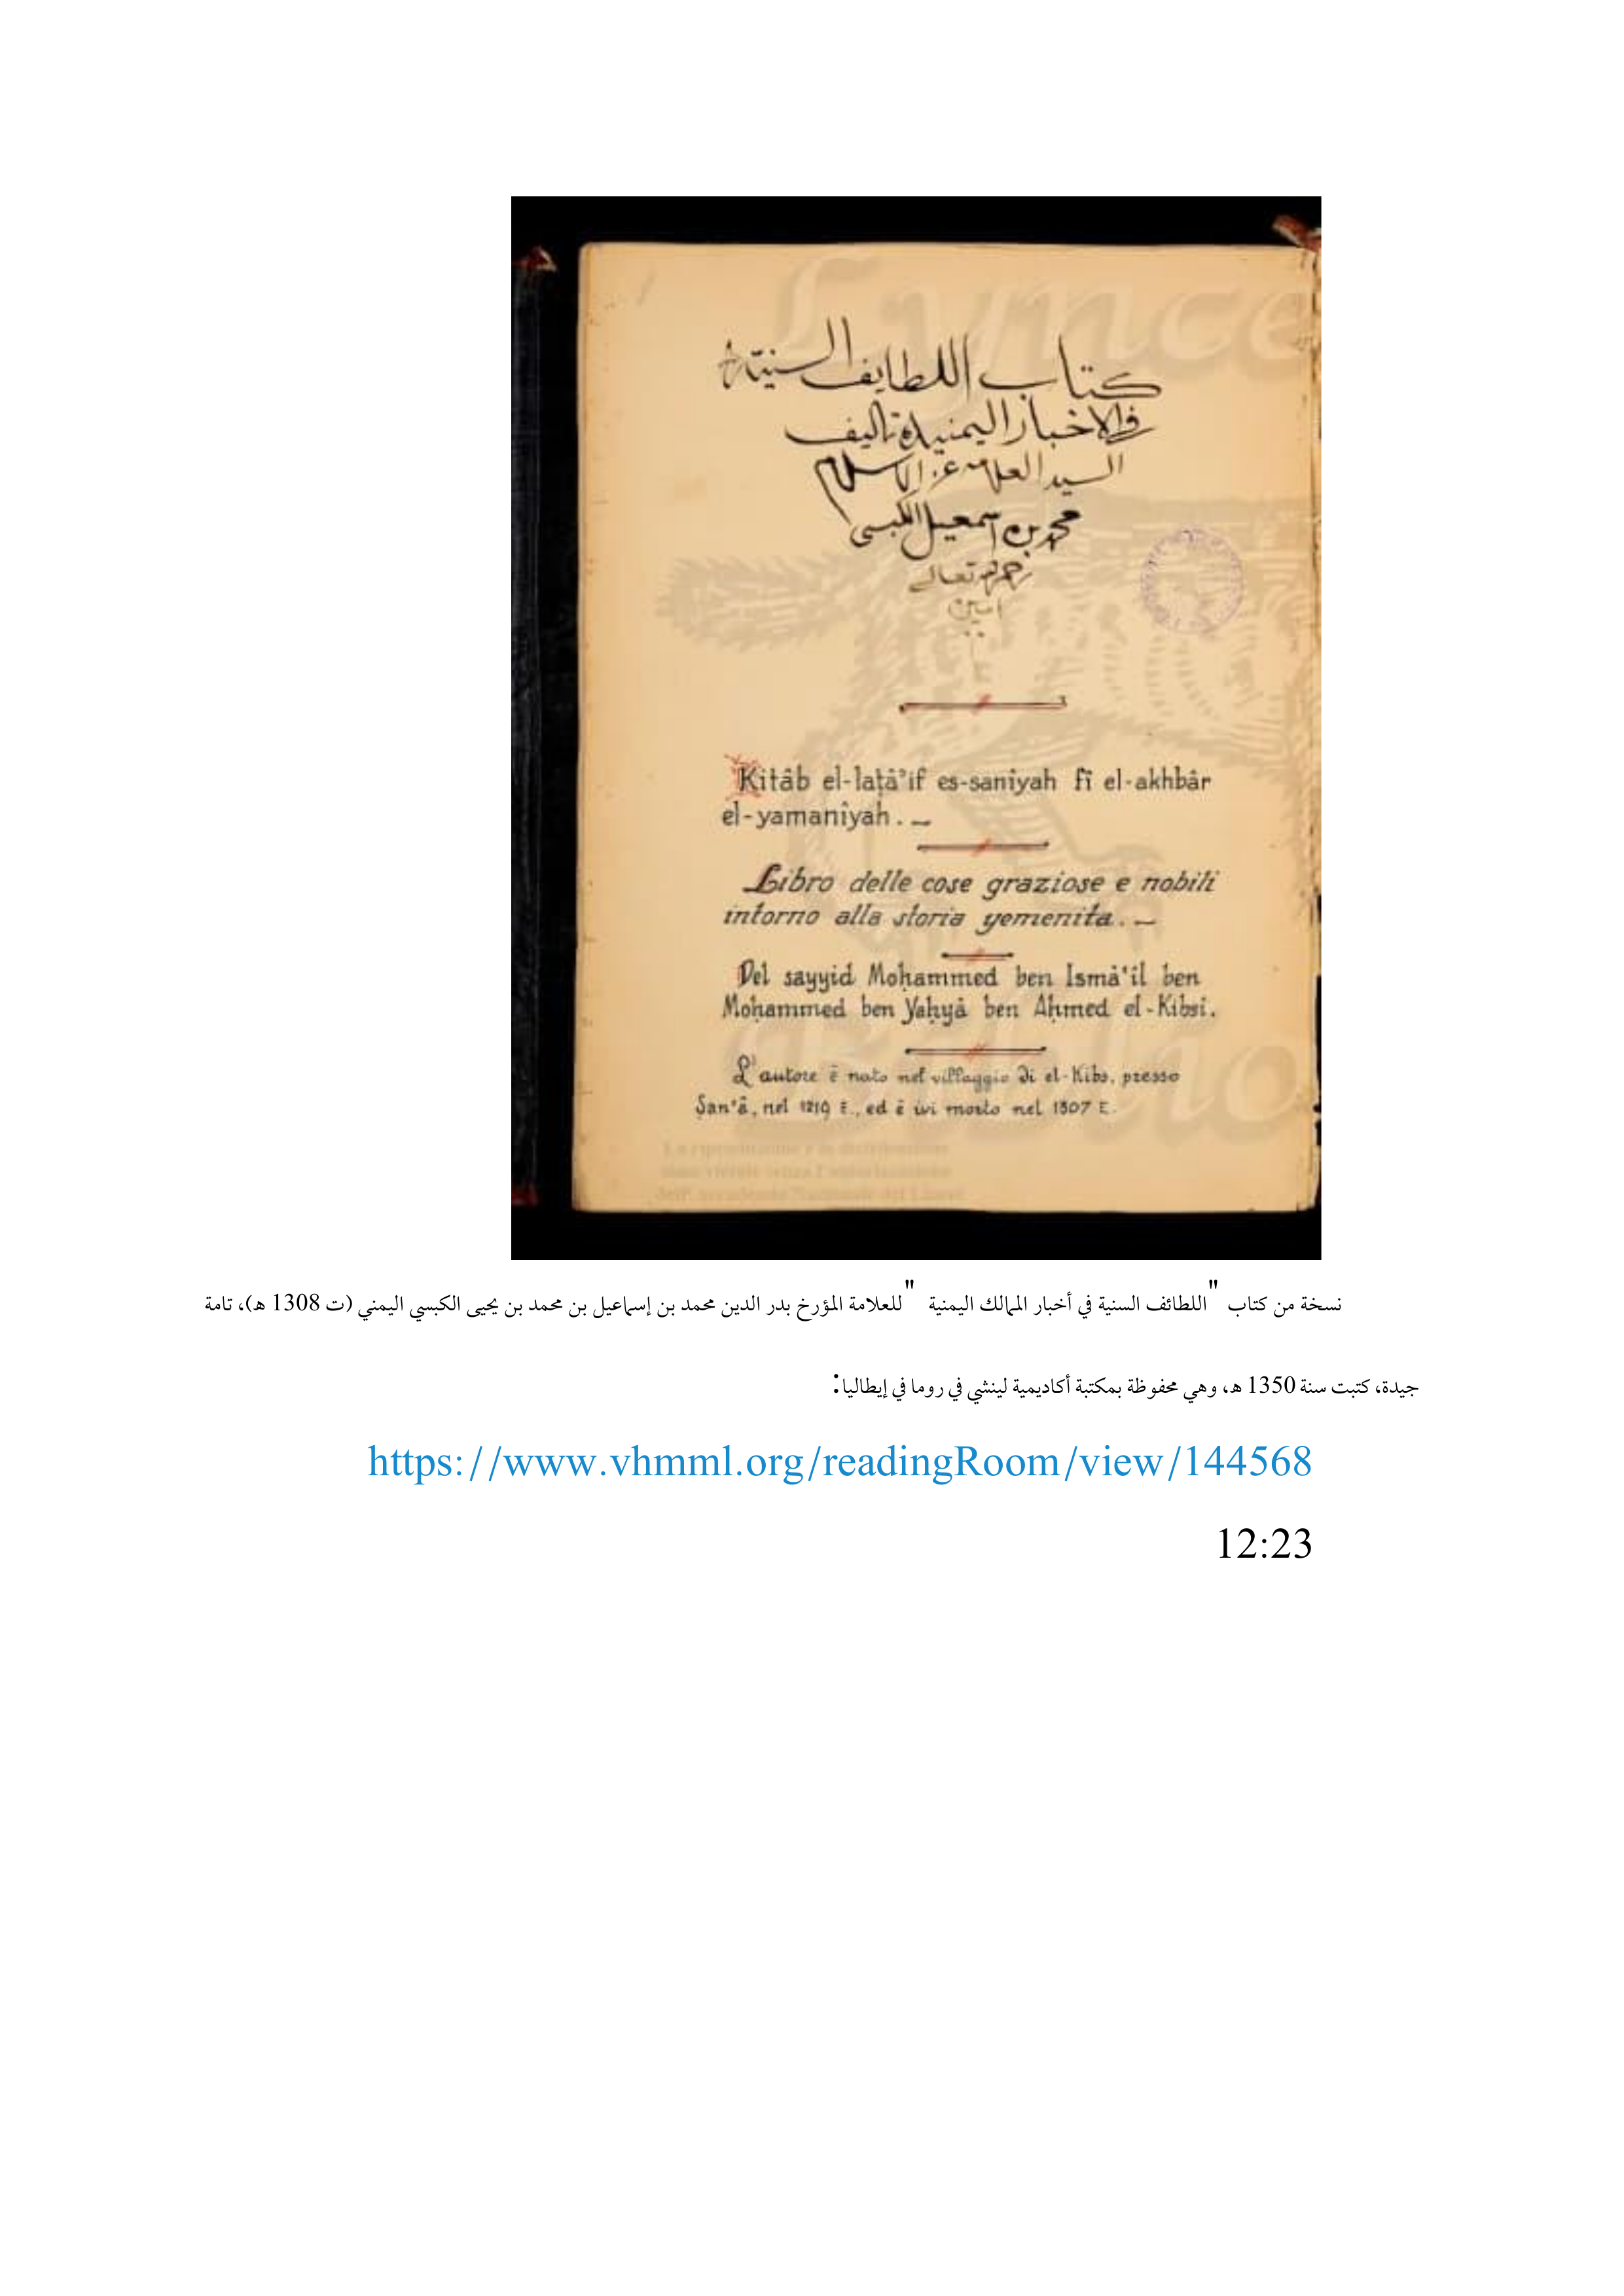 كتاب اللطايف السنية
في الاخبار اليمنية تاليف
السيد العلامه عز الاسلام
محمد بن اسمعيل الكبسي
رحمه الله تعالى
امين
Kitâb el-laṭâ'if es-sanîyah fî el-akhbâr
el-yamanîyah. —
Libro delle cose graziose e nobili
intorno alla storia yemenita. —
Del sayyid Moḥammed ben Ismâ'il ben
Moḥammed ben Yaḥyâ ben Aḥmed el-Kibsi.
L'autore è nato nel villaggio di el-Kibs, presso
Ṣan'â, nel 1219 E., ed è ivi morto nel 1307 E.
La riproduzione e la distribuzione
sono vietate senza l'autorizzazione
dell'Accademia Nazionale dei Lincei
نسخة من كتاب "اللطائف السنية في أخبار الممالك اليمنية" للعلامة المؤرخ بدر الدين محمد بن إسماعيل بن محمد بن يحيى الكبسي اليمني (ت 1308 هـ)، تامة
جيدة، كتبت سنة 1350 هـ، وهي محفوظة بمكتبة أكاديمية لينشي في روما في إيطاليا:
https://www.vhmml.org/readingRoom/view/144568
12:23